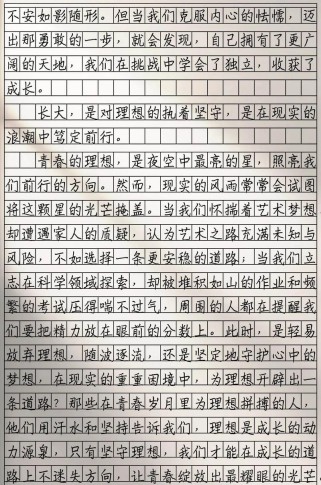 不安如影随形。但当我们克服内心的怯懦，迈
出那勇敢的一步，就会发现，自己拥有了更广
阔的天地，我们在挑战中学会了独立，收获了
成长。
长大，是对理想的执着坚守，是在现实的
浪潮中笃定前行。
青春的理想，是夜空中最亮的星，照亮我
们前行的方向。然而，现实的风雨常常会试图
将这颗星的光芒掩盖。当我们怀揣着艺术梦想
却遭遇家人的质疑，认为艺术之路充满未知与
风险，不如选择一条更安稳的道路；当我们立
志在科学领域探索，却被堆积如山的作业和频
繁的考试压得喘不过气，周围的人都在提醒我
们要把精力放在眼前的分数上。此时，是轻易
放弃理想，随波逐流，还是坚定地守护心中的
梦想，在现实的重重困境中，为理想开辟出一
条道路？那些在青春岁月里为理想拼搏的人，
他们用汗水和坚持告诉我们，理想是成长的动
力源泉，只有坚守理想，我们才能在成长的道
路上不迷失方向，让青春绽放出最耀眼的光芒。